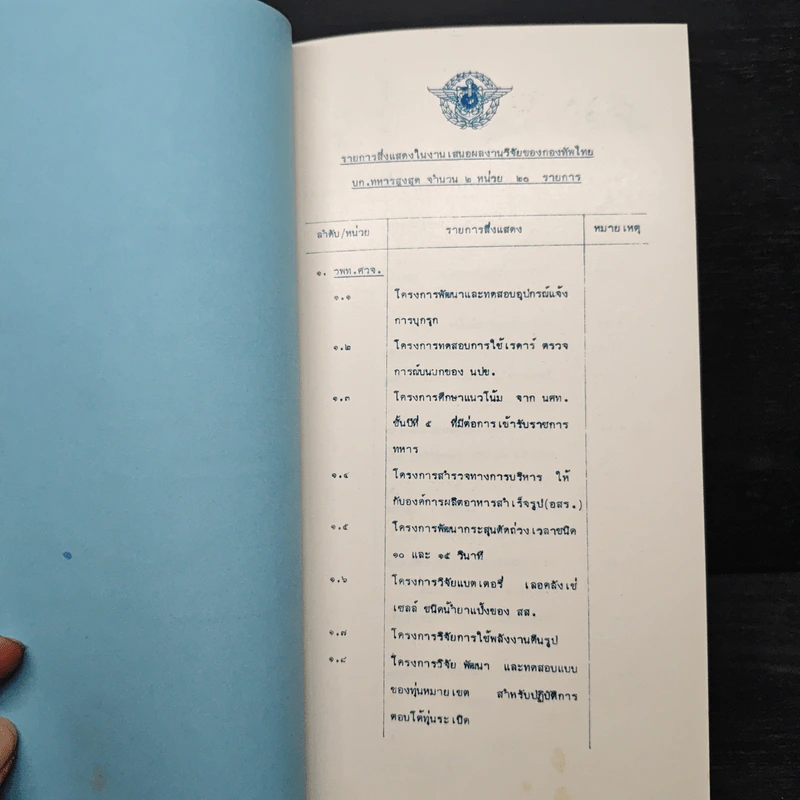 รายการสิ่งแสดงในงานเสนอผลงานวิจัยของกองทัพไทย
บก.ทหารสูงสุด จำนวน ๒ หน่วย ๒๐ รายการ
ลำดับ/หน่วย รายการสิ่งแสดง หมายเหตุ
๑. วพท.ศวจ.
๑.๑ โครงการพัฒนาและทดสอบอุปกรณ์แจ้ง
การบุกรุก
๑.๒ โครงการทดสอบการใช้เรดาร์ ตรวจ
การณ์บนบกของ นปข.
๑.๓ โครงการศึกษาแนวโน้ม จาก นศท.
ชั้นปีที่ ๕ ที่มีต่อการเข้ารับราชการ
ทหาร
๑.๔ โครงการสำรวจทางการบริหาร ให้
กับองค์การผลิตอาหารสำเร็จรูป(อสร.)
๑.๕ โครงการพัฒนากระสุนดัดถ่วงเวลาชนิด
๑๐ และ ๑๕ วินาที
๑.๖ โครงการวิจัยแบตเตอรี่ เลอคลังเช่
เซลล์ ชนิดน้ำยาแป้งของ สส.
๑.๗ โครงการวิจัยการใช้พลังงานคืนรูป
๑.๘ โครงการวิจัย พัฒนา และทดสอบแบบ
ของทุ่นหมายเขต สำหรับปฏิบัติการ
ตอบโต้ทุ่นระเบิด